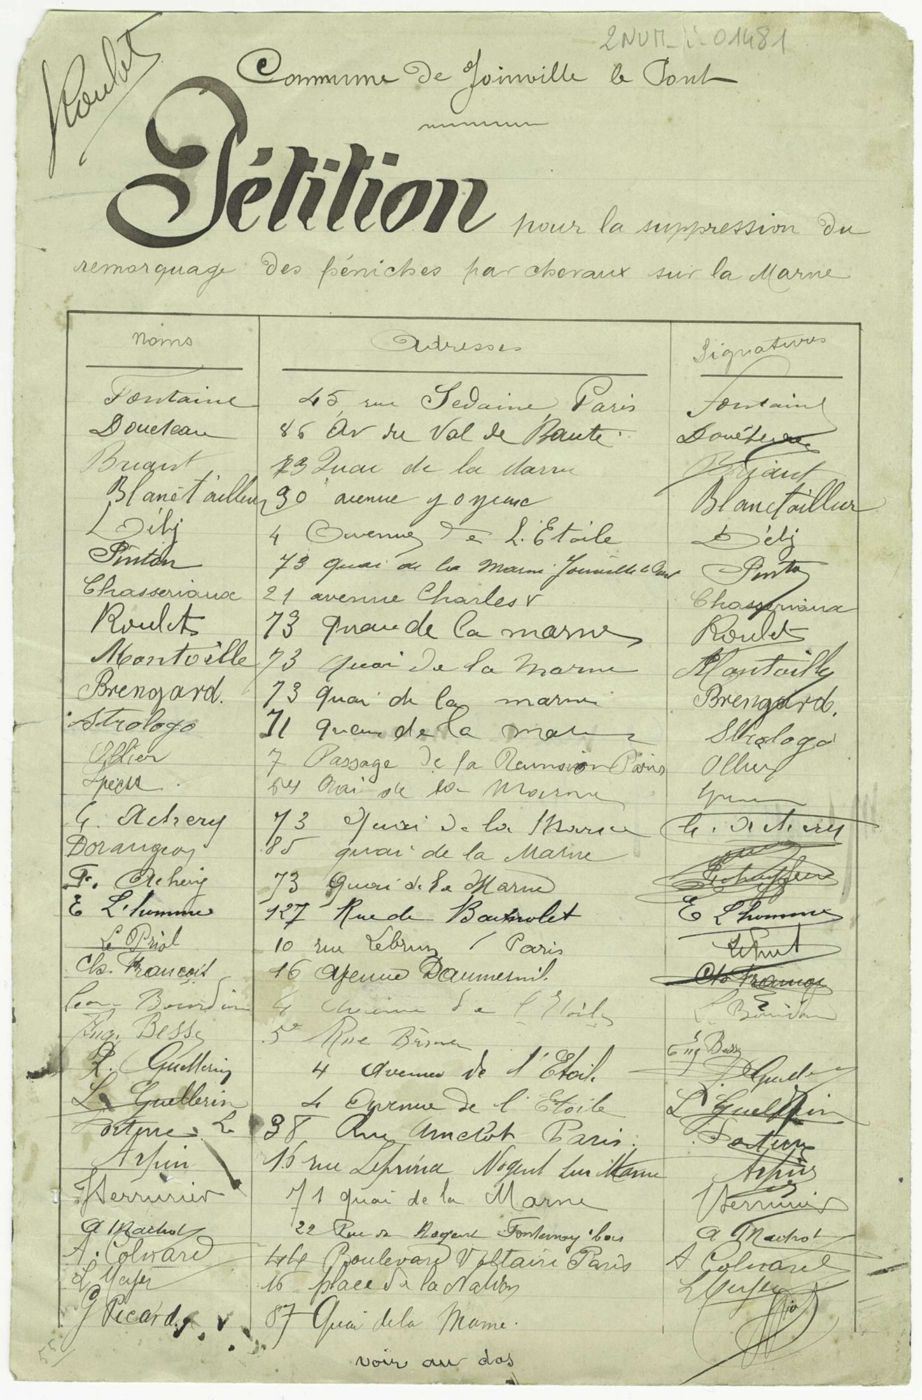 2NUM 01481
Roulet
Commune de Joinville le Pont
Pétition pour la suppression du
remorquage des péniches par chevaux sur la Marne
Noms Adresses Signatures
Fontaine 45 rue Sedaine Paris Fontaine
86 Av du Val de Beauté
Briant 73 Quai de la Marne Briant
Blanctailleur 30 avenue joyeuse Blanctailleur
4 Avenue de L'Etoile
Pinton 73 quai de la Marne Joinville le Pont Pinton
Chasseriaux 21 avenue Charles V Chasseriaux
Roulet 73 quai de la marne Roulet
Montville 73 quai de la marne
Brengard. 73 quai de la marne Brengard.
Strologo 71 quai de la marne Strologo
Ollier 7 Passage de la Reunion Paris Ollier
Quai de la Marne
G. Achery 73 Quai de la Marne G. Achery
Dorangeon 85 quai de la Marne
F. Achery 73 Quai de la Marne
E L'homme 127 Rue de Bagnolet E L'homme
10 rue Lebrun Paris
Ch. François 16 avenue Daumesnil Ch François
Bourdin Avenue de l'Etoile L. Bourdin
Eug. Besse 5 Rue Eug Besse
4 avenue de l'Etoile
L. Guellerin 4 Avenue de l'Etoile L. Guellerin
38 Rue Amelot Paris.
Arpin 15 rue Nogent sur Marne Arpin
Verrurier 71 quai de la Marne Verrurier
A Machot 22 Rue de Nogent Fontenay s/bois A Machot
A. Colnard Boulevard Voltaire Paris A Colnard
L Meyer 16 place de la Nation L Meyer
G Picard 87 Quai de la Marne.
voir au dos